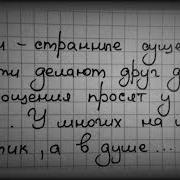 и - странные суще
ти делают друг д
ощения просят у
. У многих на и
тик, а в душе...